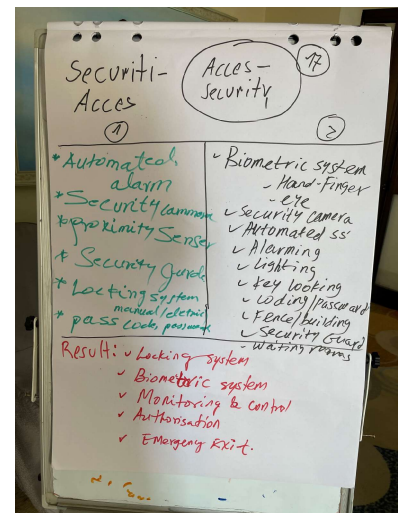 Securiti-
Acces
Acces-
security
17
1
2
* Automated,
alarm
* Security cammera
* proximity Senser
* Security gurde
* Locking system
manual/eletric
* pass code, password
✓ Biometric system
- Hand-Finger
- eye
✓ Security camera
✓ Automated ss
✓ Alarming
✓ Lighting
✓ Key looking
✓ Coding/password
✓ Fence/building
✓ Security Guard
✓ Waiting rooms
Result: ✓ Locking system
✓ Biometric system
✓ Monitoring & control
✓ Authorisation
✓ Emergeny Exit.